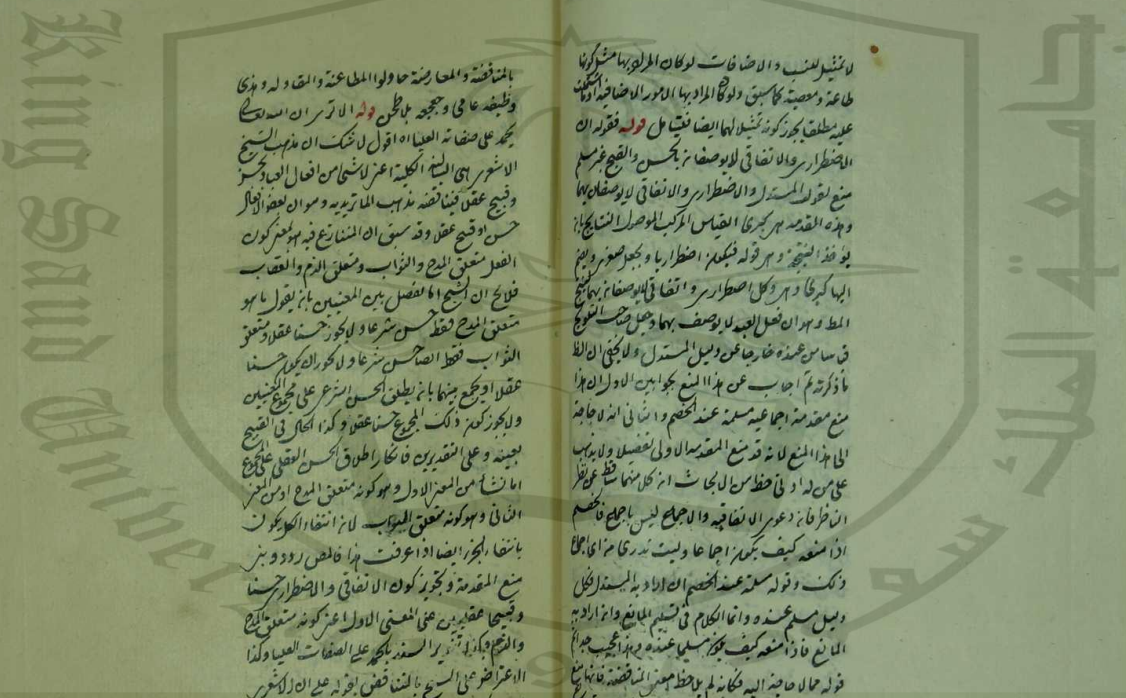 لا تمثيل للنسب والاضافات لو كان المراد بها مثل كونها
طاعة ومعصية كما سبق ولو كان المراد بها الامور الاضافية
عليه مطلقا يجوز كونه تمثيلا لهما ايضا فليتأمل قوله فقوله ان
الاضطراري والاتفاقي لا يوصفان بالحسن والقبح غير مسلم
منع لقول المستدل والاضطراري والاتفاقي لا يوصفان بهما
وهذه المقدمة هي كبرى القياس المركب الموصول النتايج بان
يؤخذ النتيجة وهي قوله فيكون اضطراريا ويجعل صغرى ويضم
اليها كبرى وهي وكل اضطراري واتفاقي لا يوصفان بهما
المط وهو ان فعل العبد لا يوصف بهما وجعل صاحب التلويح
من عنده خارجا عن دليل المستدل ولا يخفى ان الظ
ما ذكرته ثم اجاب عن هذا المنع بجوابين الاول ان هذا
منع مقدمة اجماعية مسلمة عند الخصم والثاني انه لا حاجة
الى هذا المنع لانه قد منع المقدمة الاولى تفصيلا ولا يذهب
على من له ادنى حظ من الابحاث ان كلا منهما ساقط عن نظر
فانه دعوى الاتفاقية والاجماع ليس باجماع فالخصم
اذا منعه كيف يكون اجماعا وليت ندري من اي اجماع
ذلك وقوله مسلمة عند الخصم ان اراد به المستدل فكل
دليل مسلم عنده وانما الكلام في تسليم المانع وان اراد به
المانع فاذا منعه كيف يكون مسلما عنده وهذا عجيب جدا
قوله مما لا حاجة اليه فكانه لم يلاحظ معنى المناقضة فانها منع
بالمناقضة والمعارضة حاولوا المطاعنة والمقاولة وهذى
وظيفة عامي وجعجعة بلا طحن قوله الا ترى ان الله تعالى
يحمد على صفاته العليا اه اقول لا شك ان مذهب الشيخ
الاشعري هي السالبة الكلية اعني لا شئ من افعال العباد بحسن
وقبيح عقلا فيناقضه مذهب الماتريدية وهو ان بعض الافعال
حسن او قبيح عقلا وقد سبق ان المتنازع فيه هو بمعنى كون
الفعل متعلق المدح والثواب ومتعلق الذم والعقاب
فلايح ان الشيخ اما يفصل بين المعنيين بان يقول ما هو
متعلق المدح فقط حسن شرعا ولا يجوز حسنا عقلا ومتعلق
الثواب فقط ايضا حسن شرعا ولا يجوز ان يكون حسنا
عقلا او يجمع بينهما بان يطلق الحسن الشرعي على مجموع المعنيين
ولا يجوز كون ذلك المجموع حسنا عقلا وكذا الحال في القبيح
بعينه وعلى التقديرين فانكار اطلاق الحسن العقلي على المجموع
اما نشأ من المعنى الاول وهو كونه متعلق المدح او من المعنى
الثاني وهو كونه متعلق الثواب لان انتفاء الكل يكون
بانتفاء الجزء ايضا اذا عرفت هذا فالمص ردد وبنى
منع المقدمة وتجويز كون الاتفاقي والاضطراري حسنا
وقبيحا عقليين على المعنى الاول اعني كونه متعلق المدح
والذم وكذا السند بالحمد على الصفات العليا وكذا
الاعتراض على الشيخ بالتناقض بقوله على ان الاشعري
King Saud University
جامعة الملك سعود